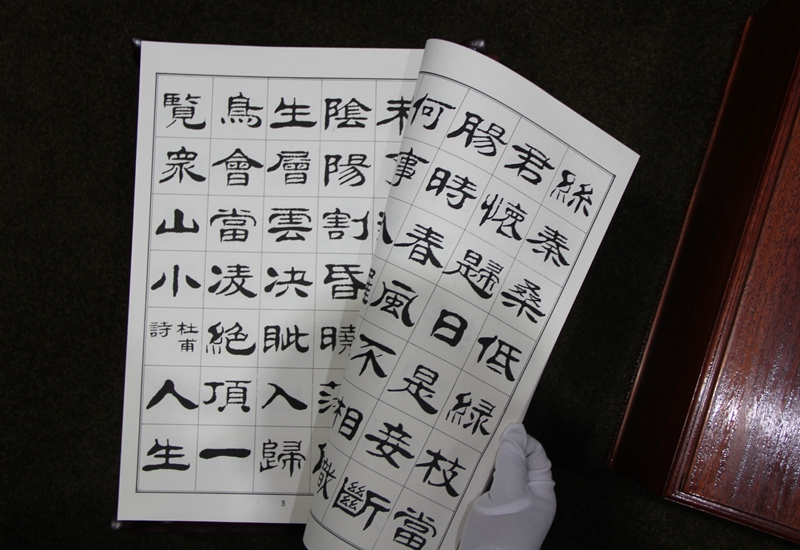 絲秦桑低緑枝當
君懷歸日是妾斷
腸時春風不相識
何事
未
陰陽割昏曉蕩
生層雲决眦入歸
鳥會當凌絕頂一
覽衆山小
杜甫
詩
人生